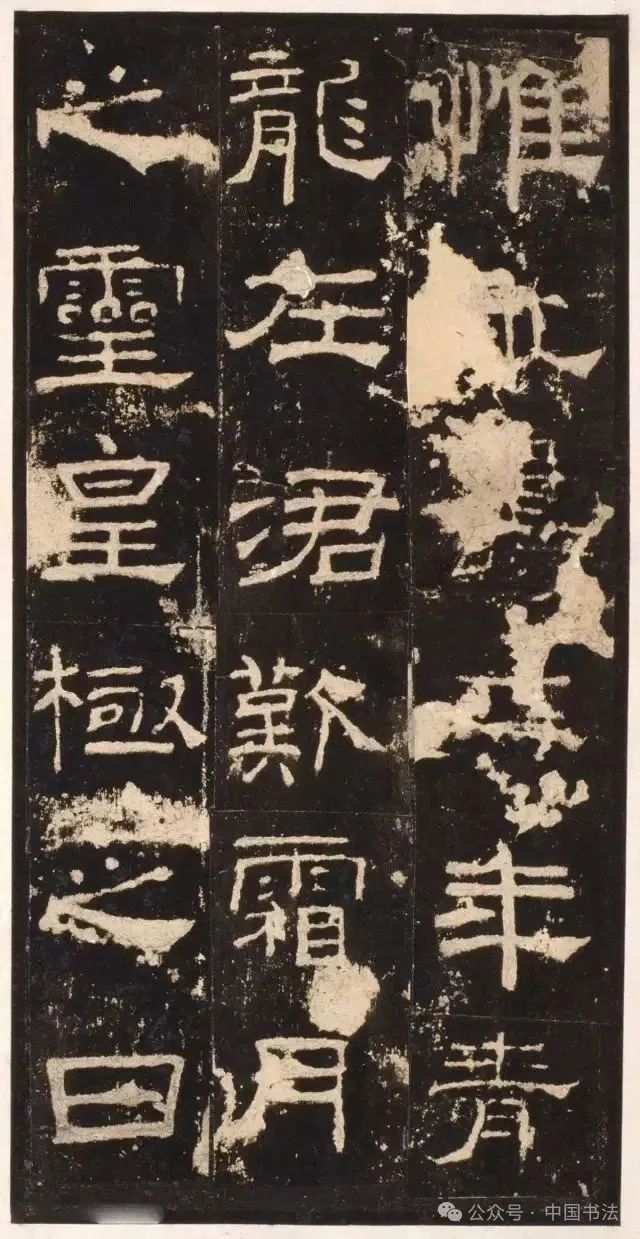 惟年青
龍在涒歎霜月
之靈皇極之日
公众号 · 中国书法